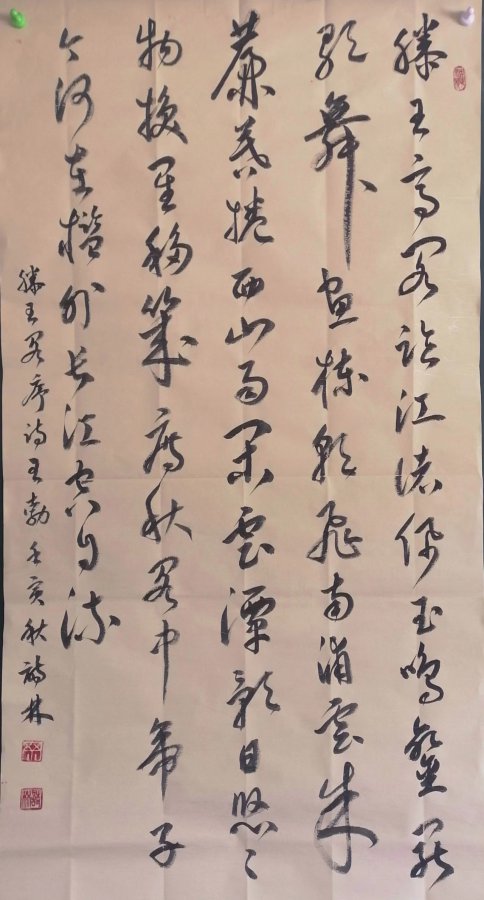 滕王高阁临江渚佩玉鸣銮罢
歌舞画栋朝飞南浦雲朱
簾暮捲西山雨闲雲潭影日悠々
物换星移幾度秋阁中帝子
今何在槛外长江空自流
滕王阁序诗王勃壬寅秋林